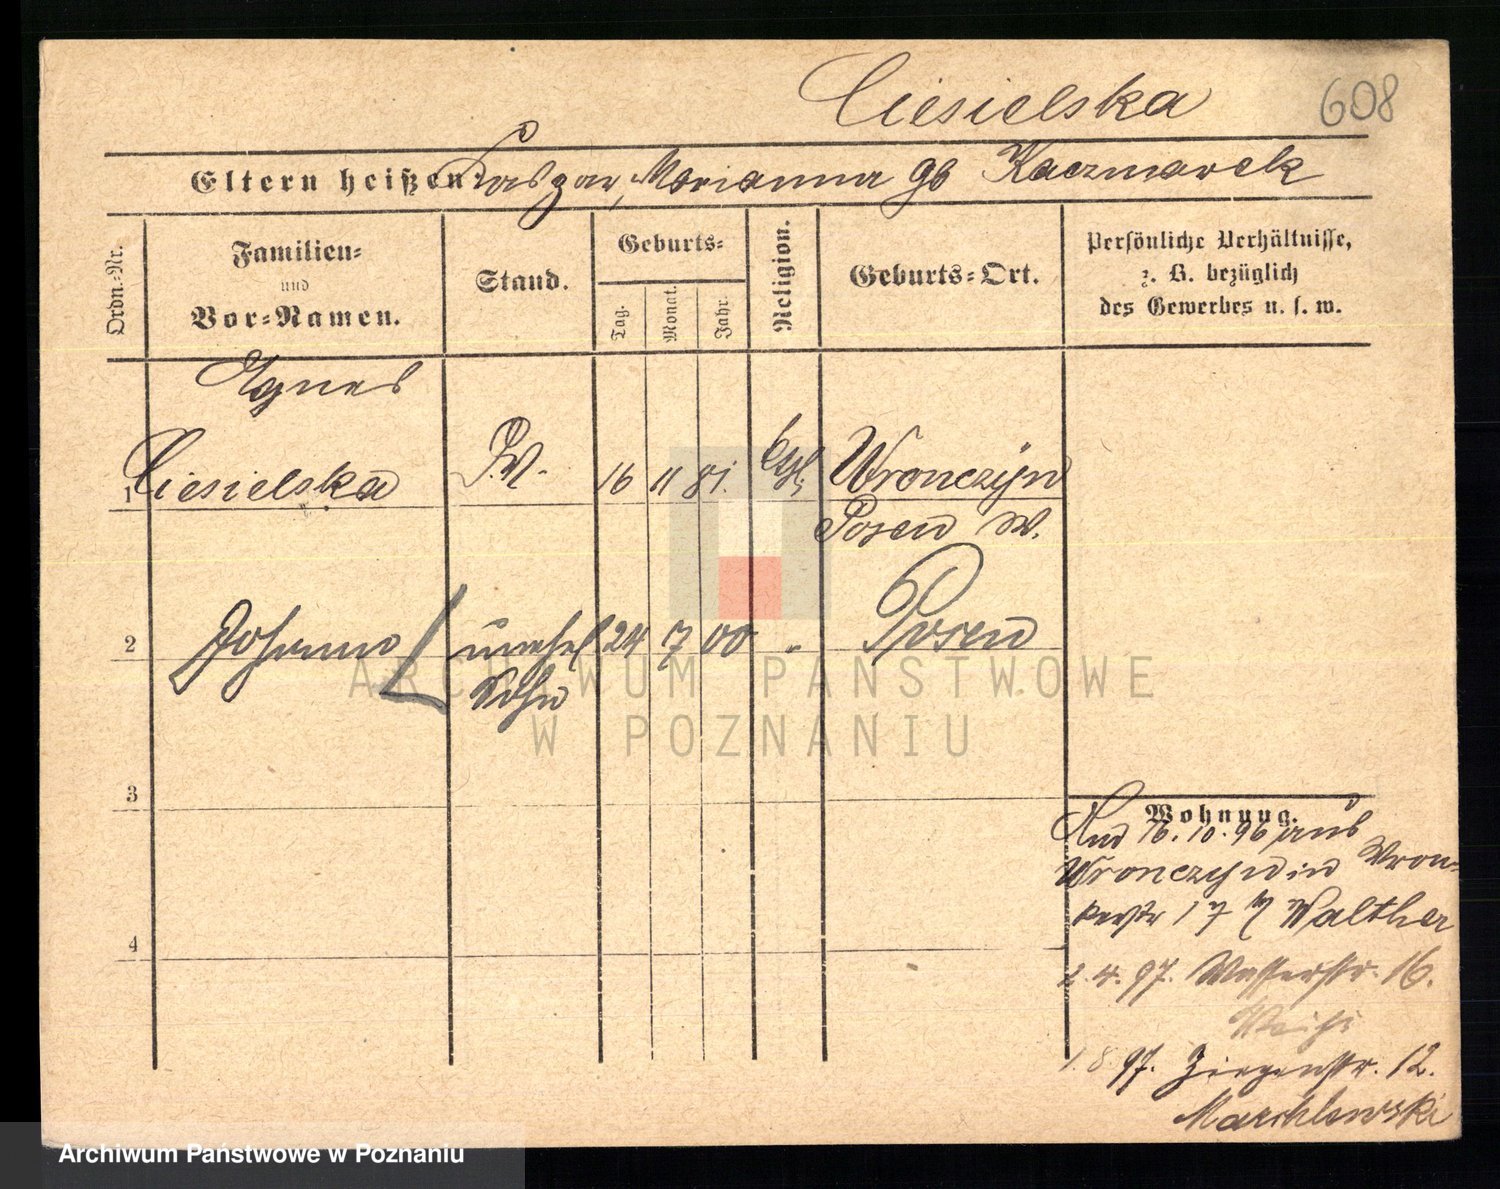 Ciesielska
608
Eltern heißen: Kaspar, Marianna gb Kaczmarek
Ordn.-Nr.
Familien- und Vor-Namen.
Stand.
Geburts-
Tag.
Monat.
Jahr.
Religion.
Geburts-Ort.
Persönliche Verhältnisse,
z. B. bezüglich
des Gewerbes u. s. w.
Agnes
1 Ciesielska 16 11 81. Wronczyn
Posen W.
2 Johann unehel 24 7 00 " Posen
Sohn
3
4
ARCHIWUM PAŃSTWOWE
W POZNANIU
Wohnung.
16.10.96 aus
Wronczyn in Wron-
kerstr 17 Walther
2.4.97. Wasserstr. 16.
1.8.97. Ziegenstr. 12.
Marchlewski
Archiwum Państwowe w Poznaniu